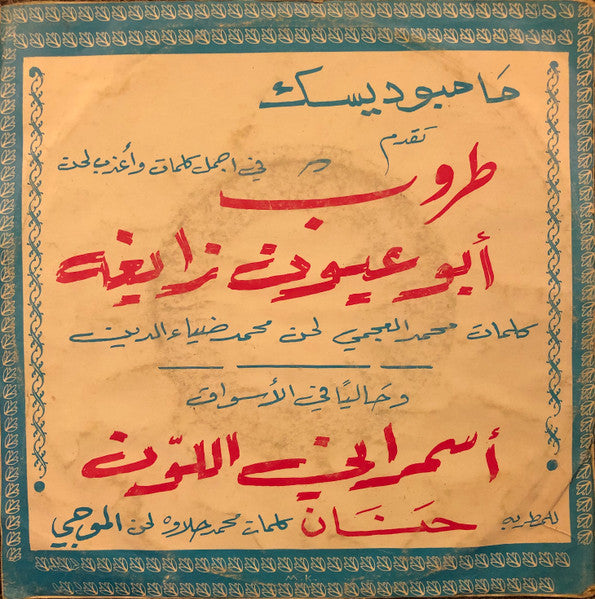 حامبوديسك
تقدم
طروب في اجمل كلمات وأعذب لحن
أبو عيون زايغه
كلمات محمد العجمي لحن محمد ضياء الدين
وحاليًا في الأسواق
أسمراني اللوّن
للمطربه حنان كلمات محمد حلاوه لحن الموجي
M.K